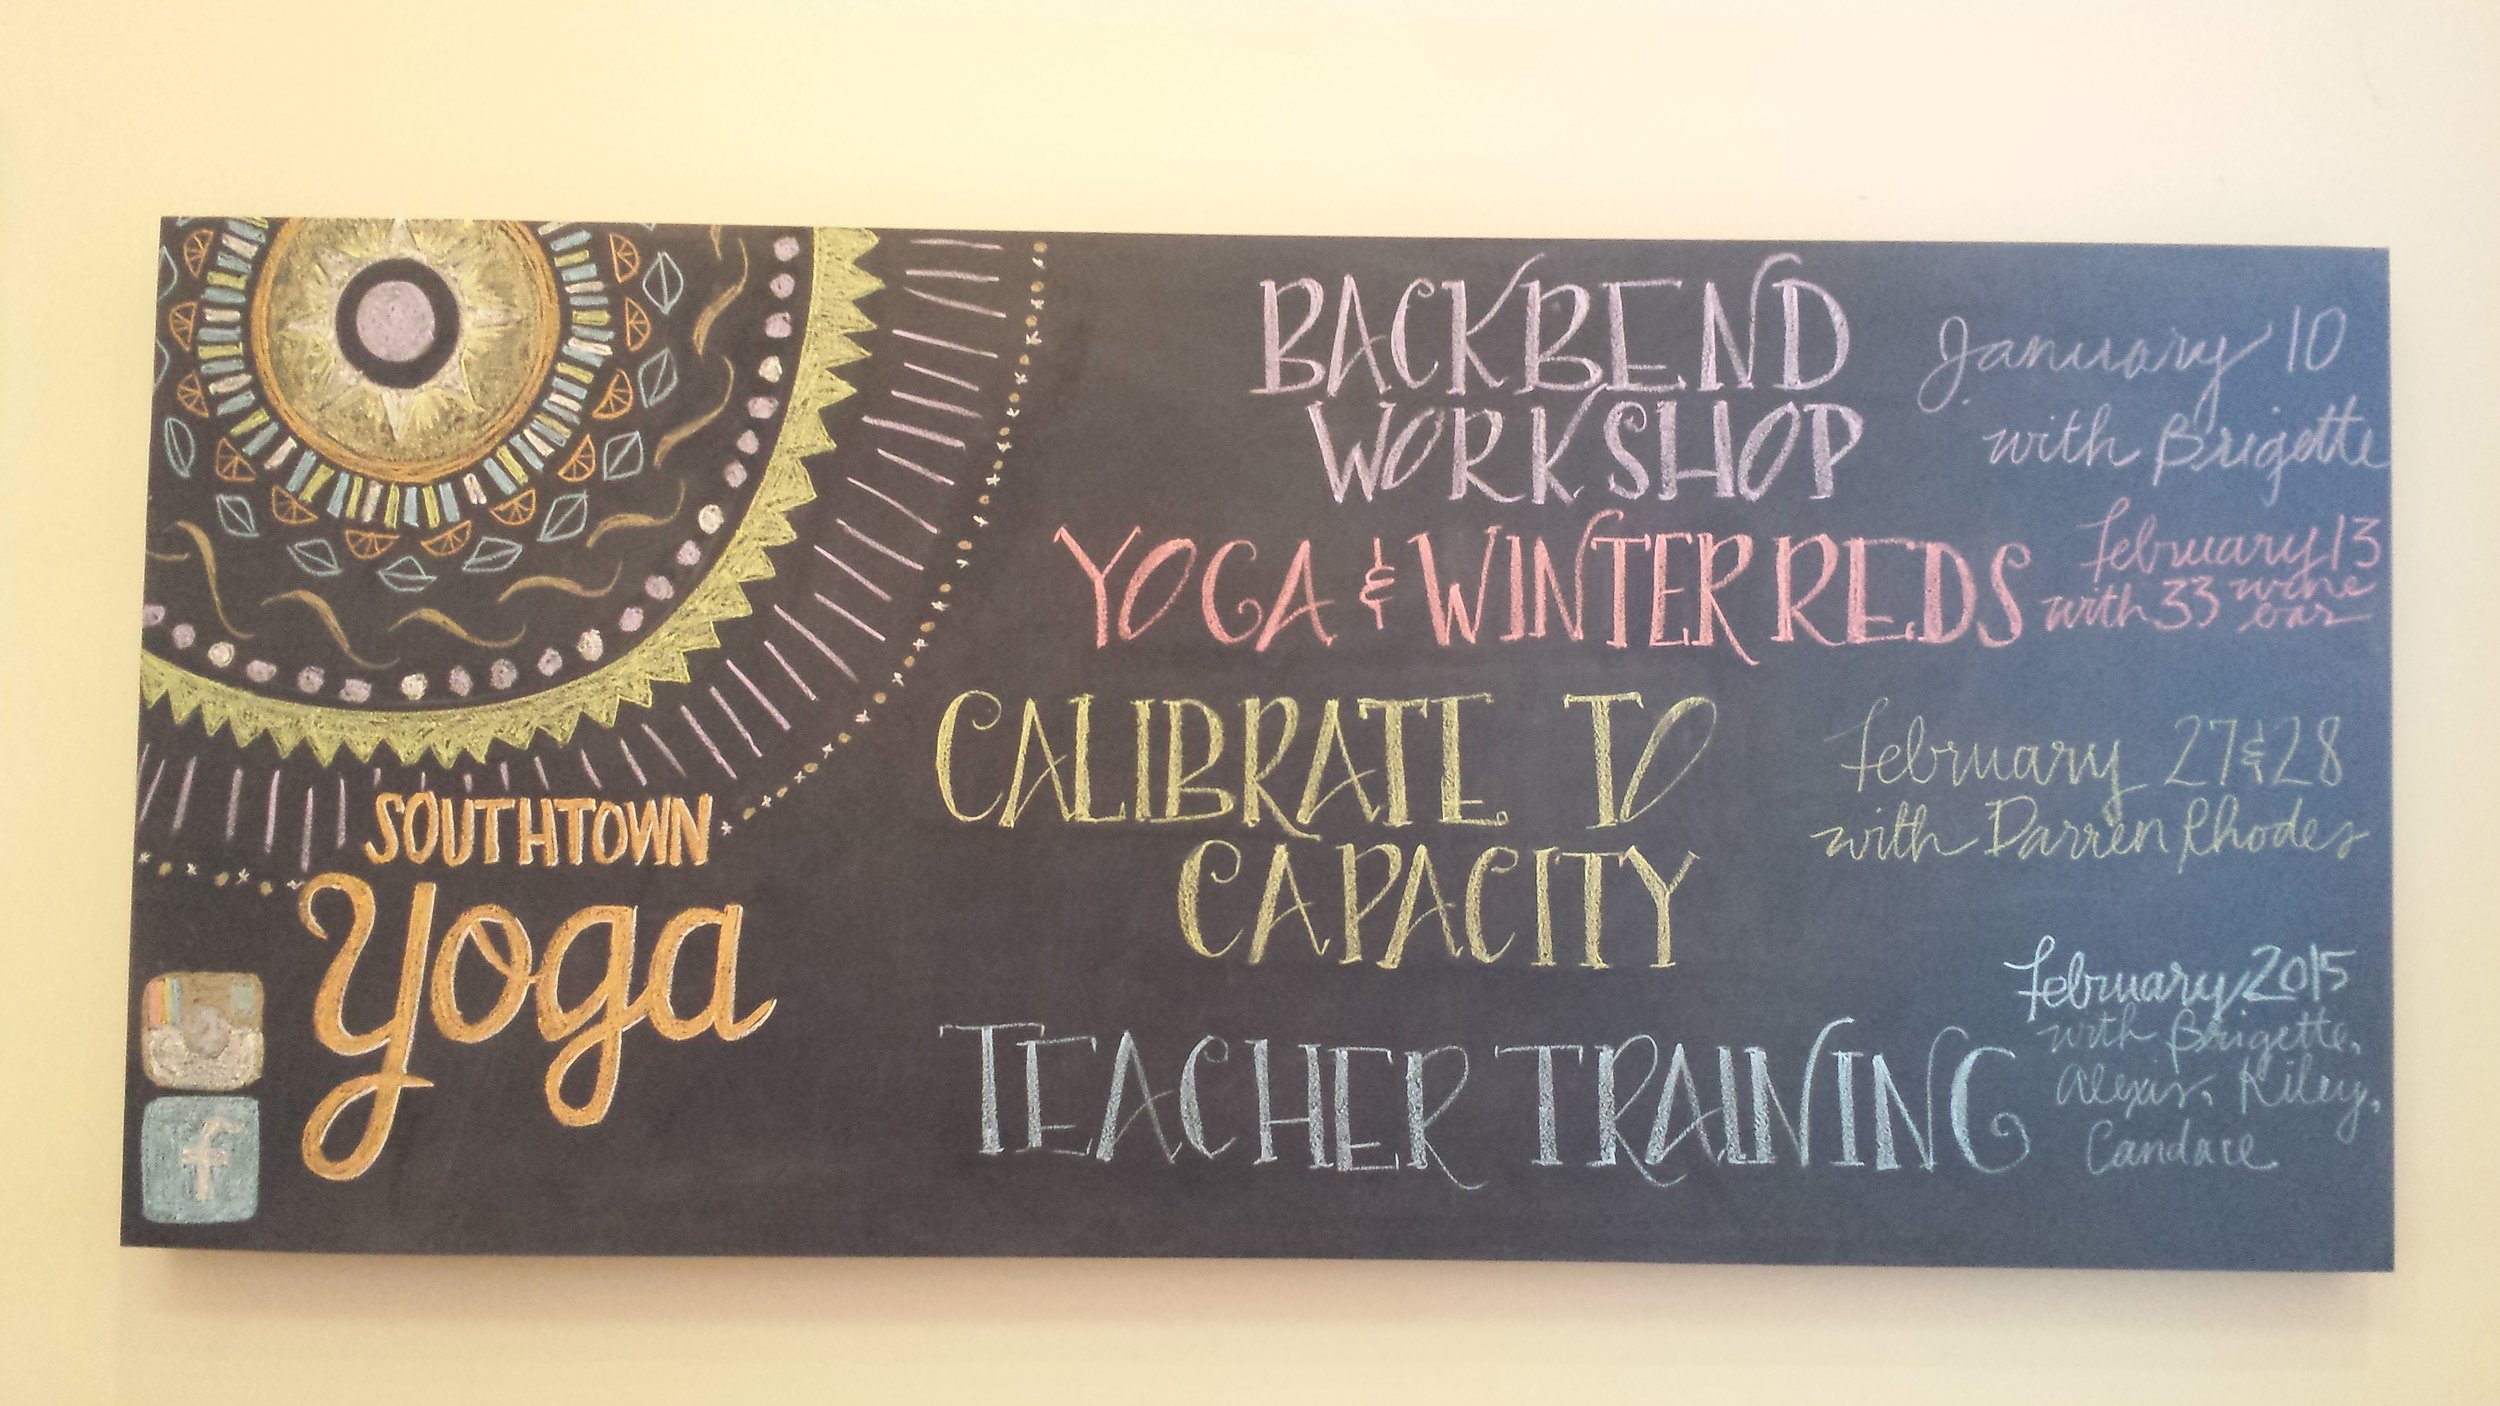 BACKBEND
WORKSHOP
January 10
with Brigette
YOGA & WINTER REDS
February 13
with 33 wine
bar
CALIBRATE TO
CAPACITY
February 27 & 28
with Darren Rhodes
TEACHER TRAINING
February 2015
with Brigette,
Alexis, Kiley,
Candace
SOUTHTOWN
yoga
f